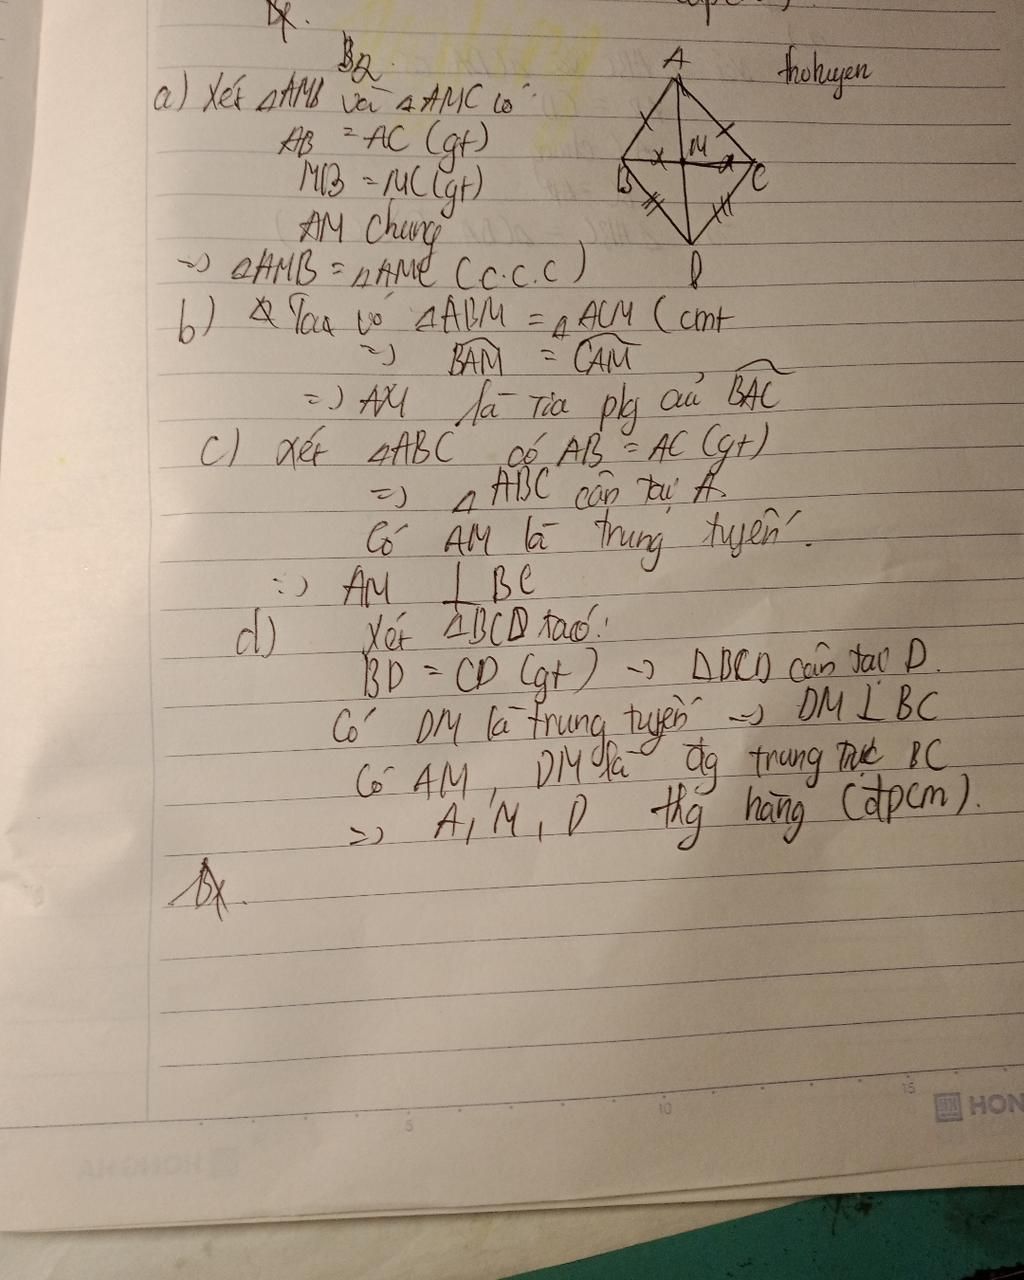 B2.
thohuyen
A
M
B
C
D
a) Xét △AMB và △AMC có:
AB = AC (gt)
MB = MC (gt)
AM chung
=> △AMB = △AMC (c.c.c)
b) Ta có △ABM = △ACM (cmt
=> BAM = CAM
=> AM là tia plg củả BAC
c) xét △ABC có AB = AC (gt)
=> △ABC cân tại A.
Có AM là trung tuyến.
=> AM ⊥ BC
d) Xét △BCD ta có:
BD = CD (gt) => △BCD cân tại D.
Có DM là trung tuyến => DM ⊥ BC
Có AM, DM là đg trung trực BC
=> A, M, D thg hàng (đpcm).
5
10
15
HON